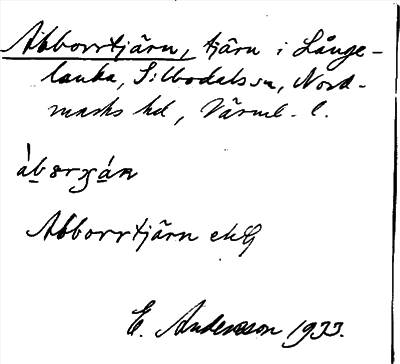 Abborrtjärn, tjärn i Långe-
lanka, Silbodals sn, Nord-
marks hd, Värml. l.
Abborrtjärn ekG
E. Andersson 1933.